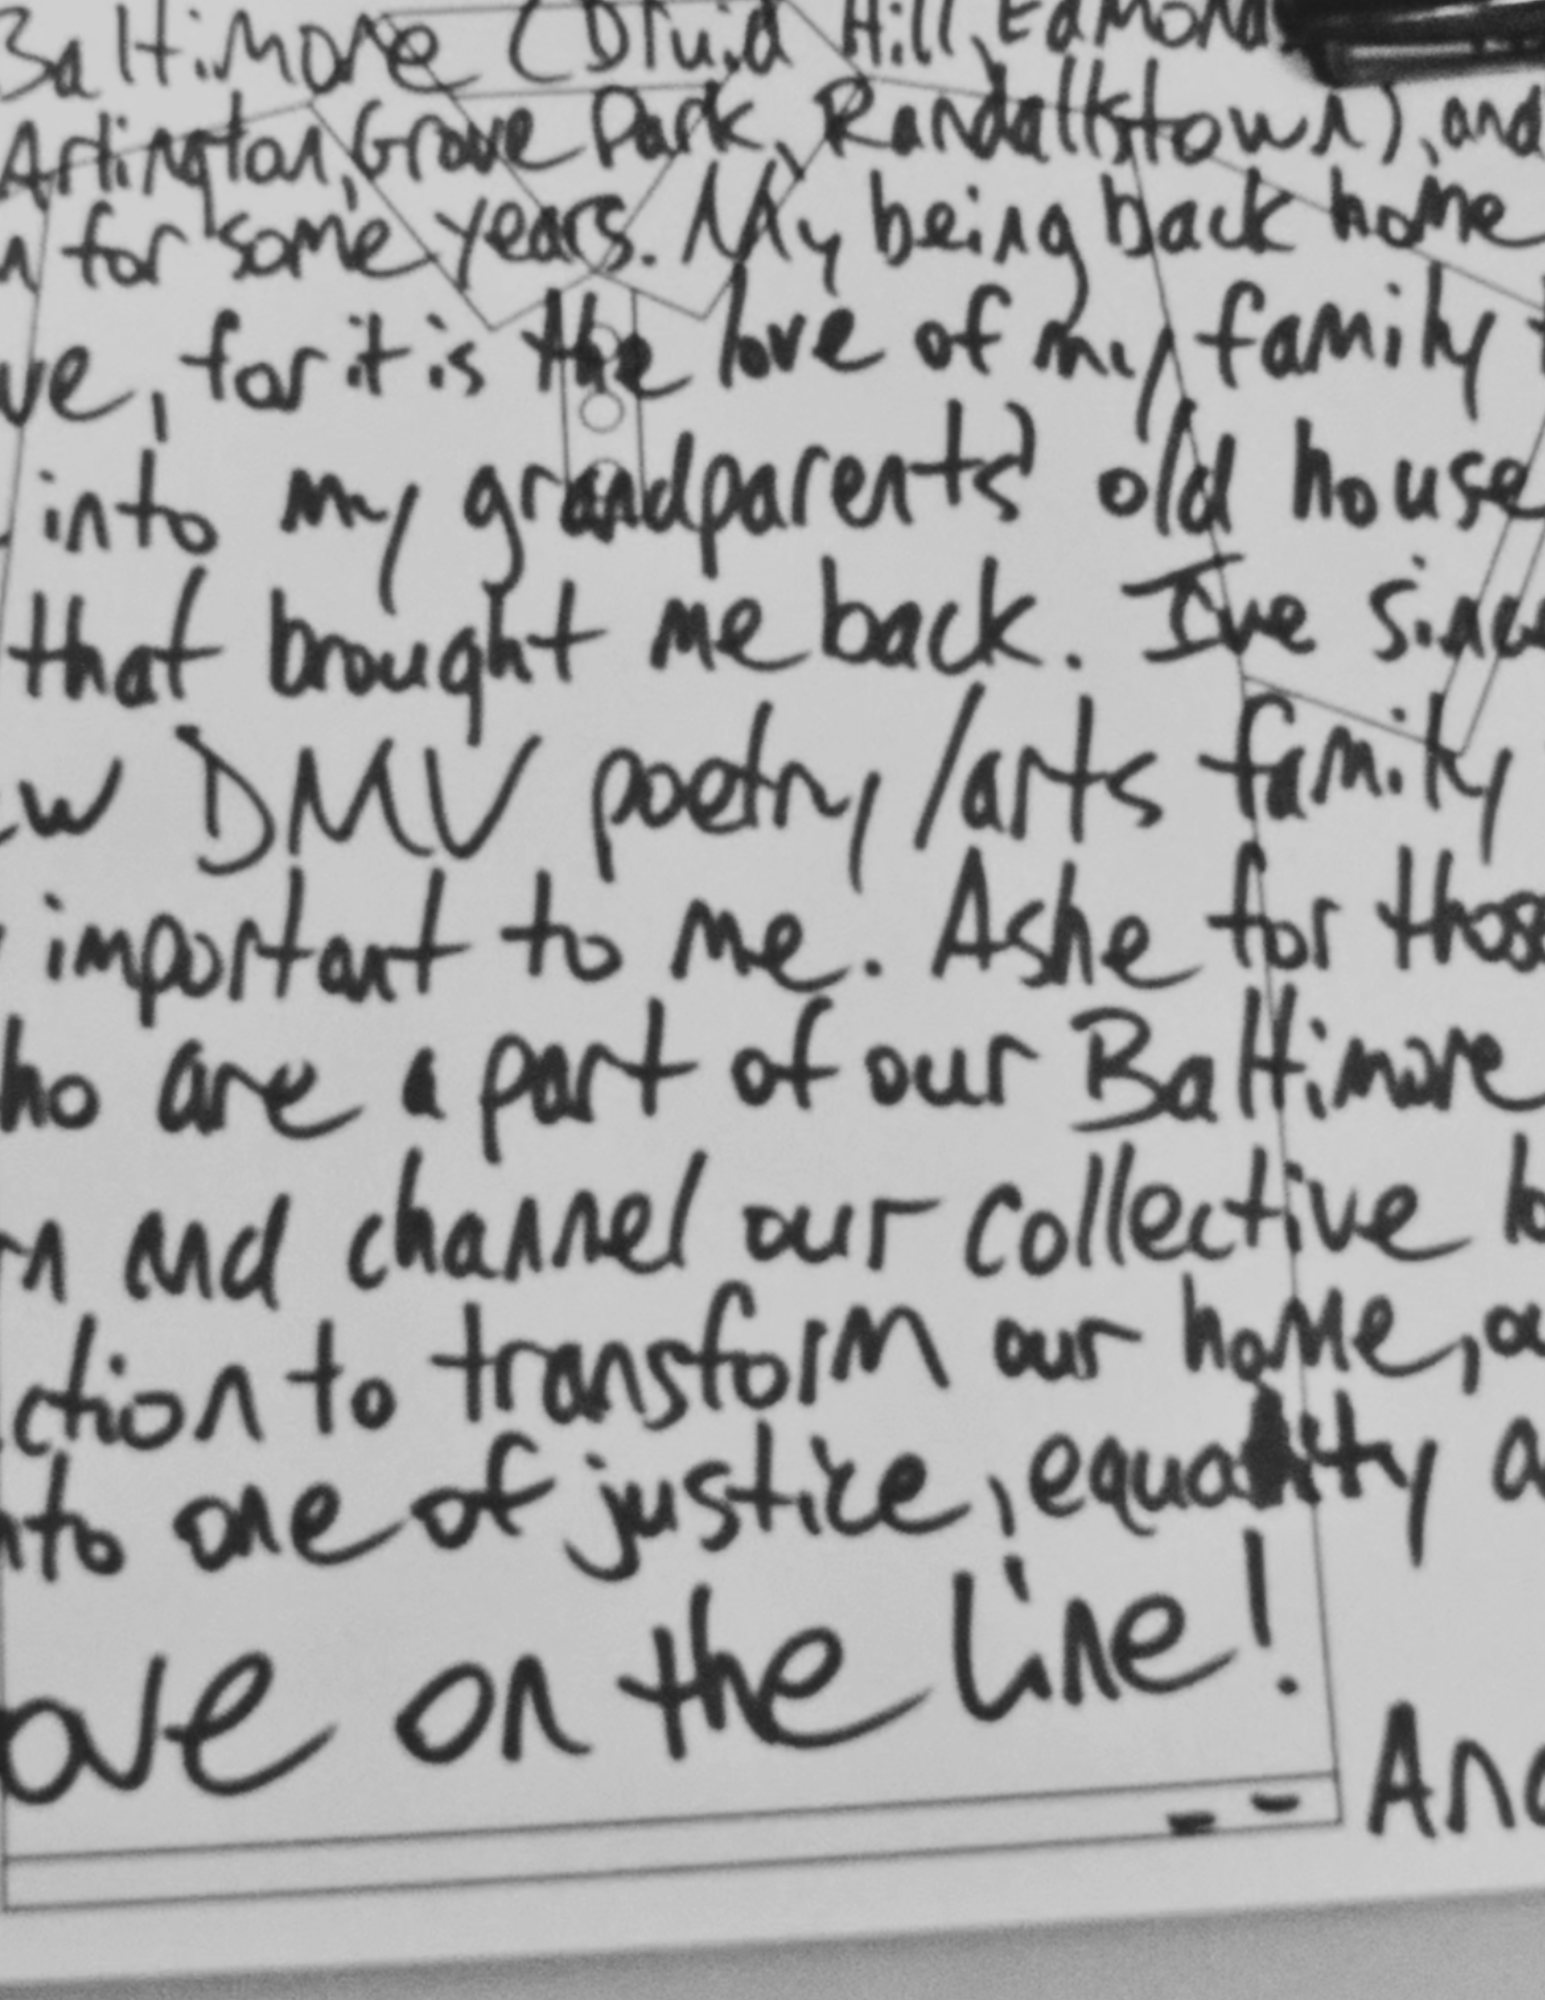 Baltimore (Druid Hill, Edmonds
Arlington, Grove Park, Randallstown), and
n for some years. My being back home
ve, for it is the love of my family
into my grandparents' old house
that brought me back. I've sinc
ew DMV poetry/arts family
important to me. Ashe for thos
ho are a part of our Baltimore
rn and channel our collective lo
ction to transform our home, ou
nto one of justice, equality a
ove on the line!
-- And